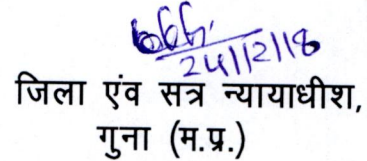 24/12/18
जिला एंव सत्र न्यायाधीश,
गुना (म.प्र.)